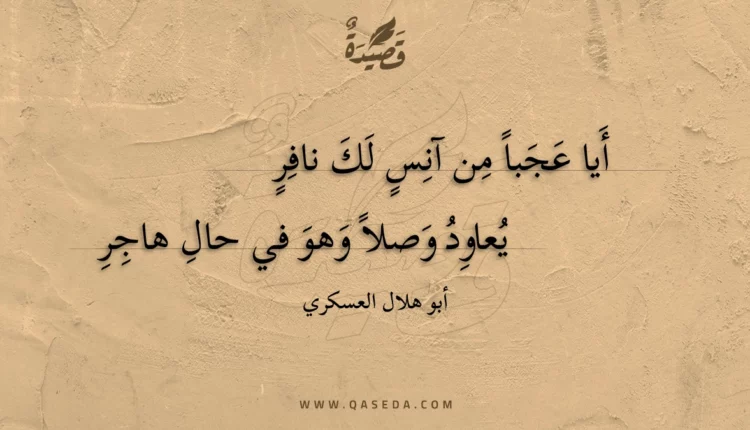 قَصِيدَةٌ
أَيا عَجَباً مِن آنِسٍ لَكَ نافِرٍ
يُعاوِدُ وَصلاً وَهوَ في حالِ هاجِرِ
أبو هلال العسكري
WWW.QASEDA.COM